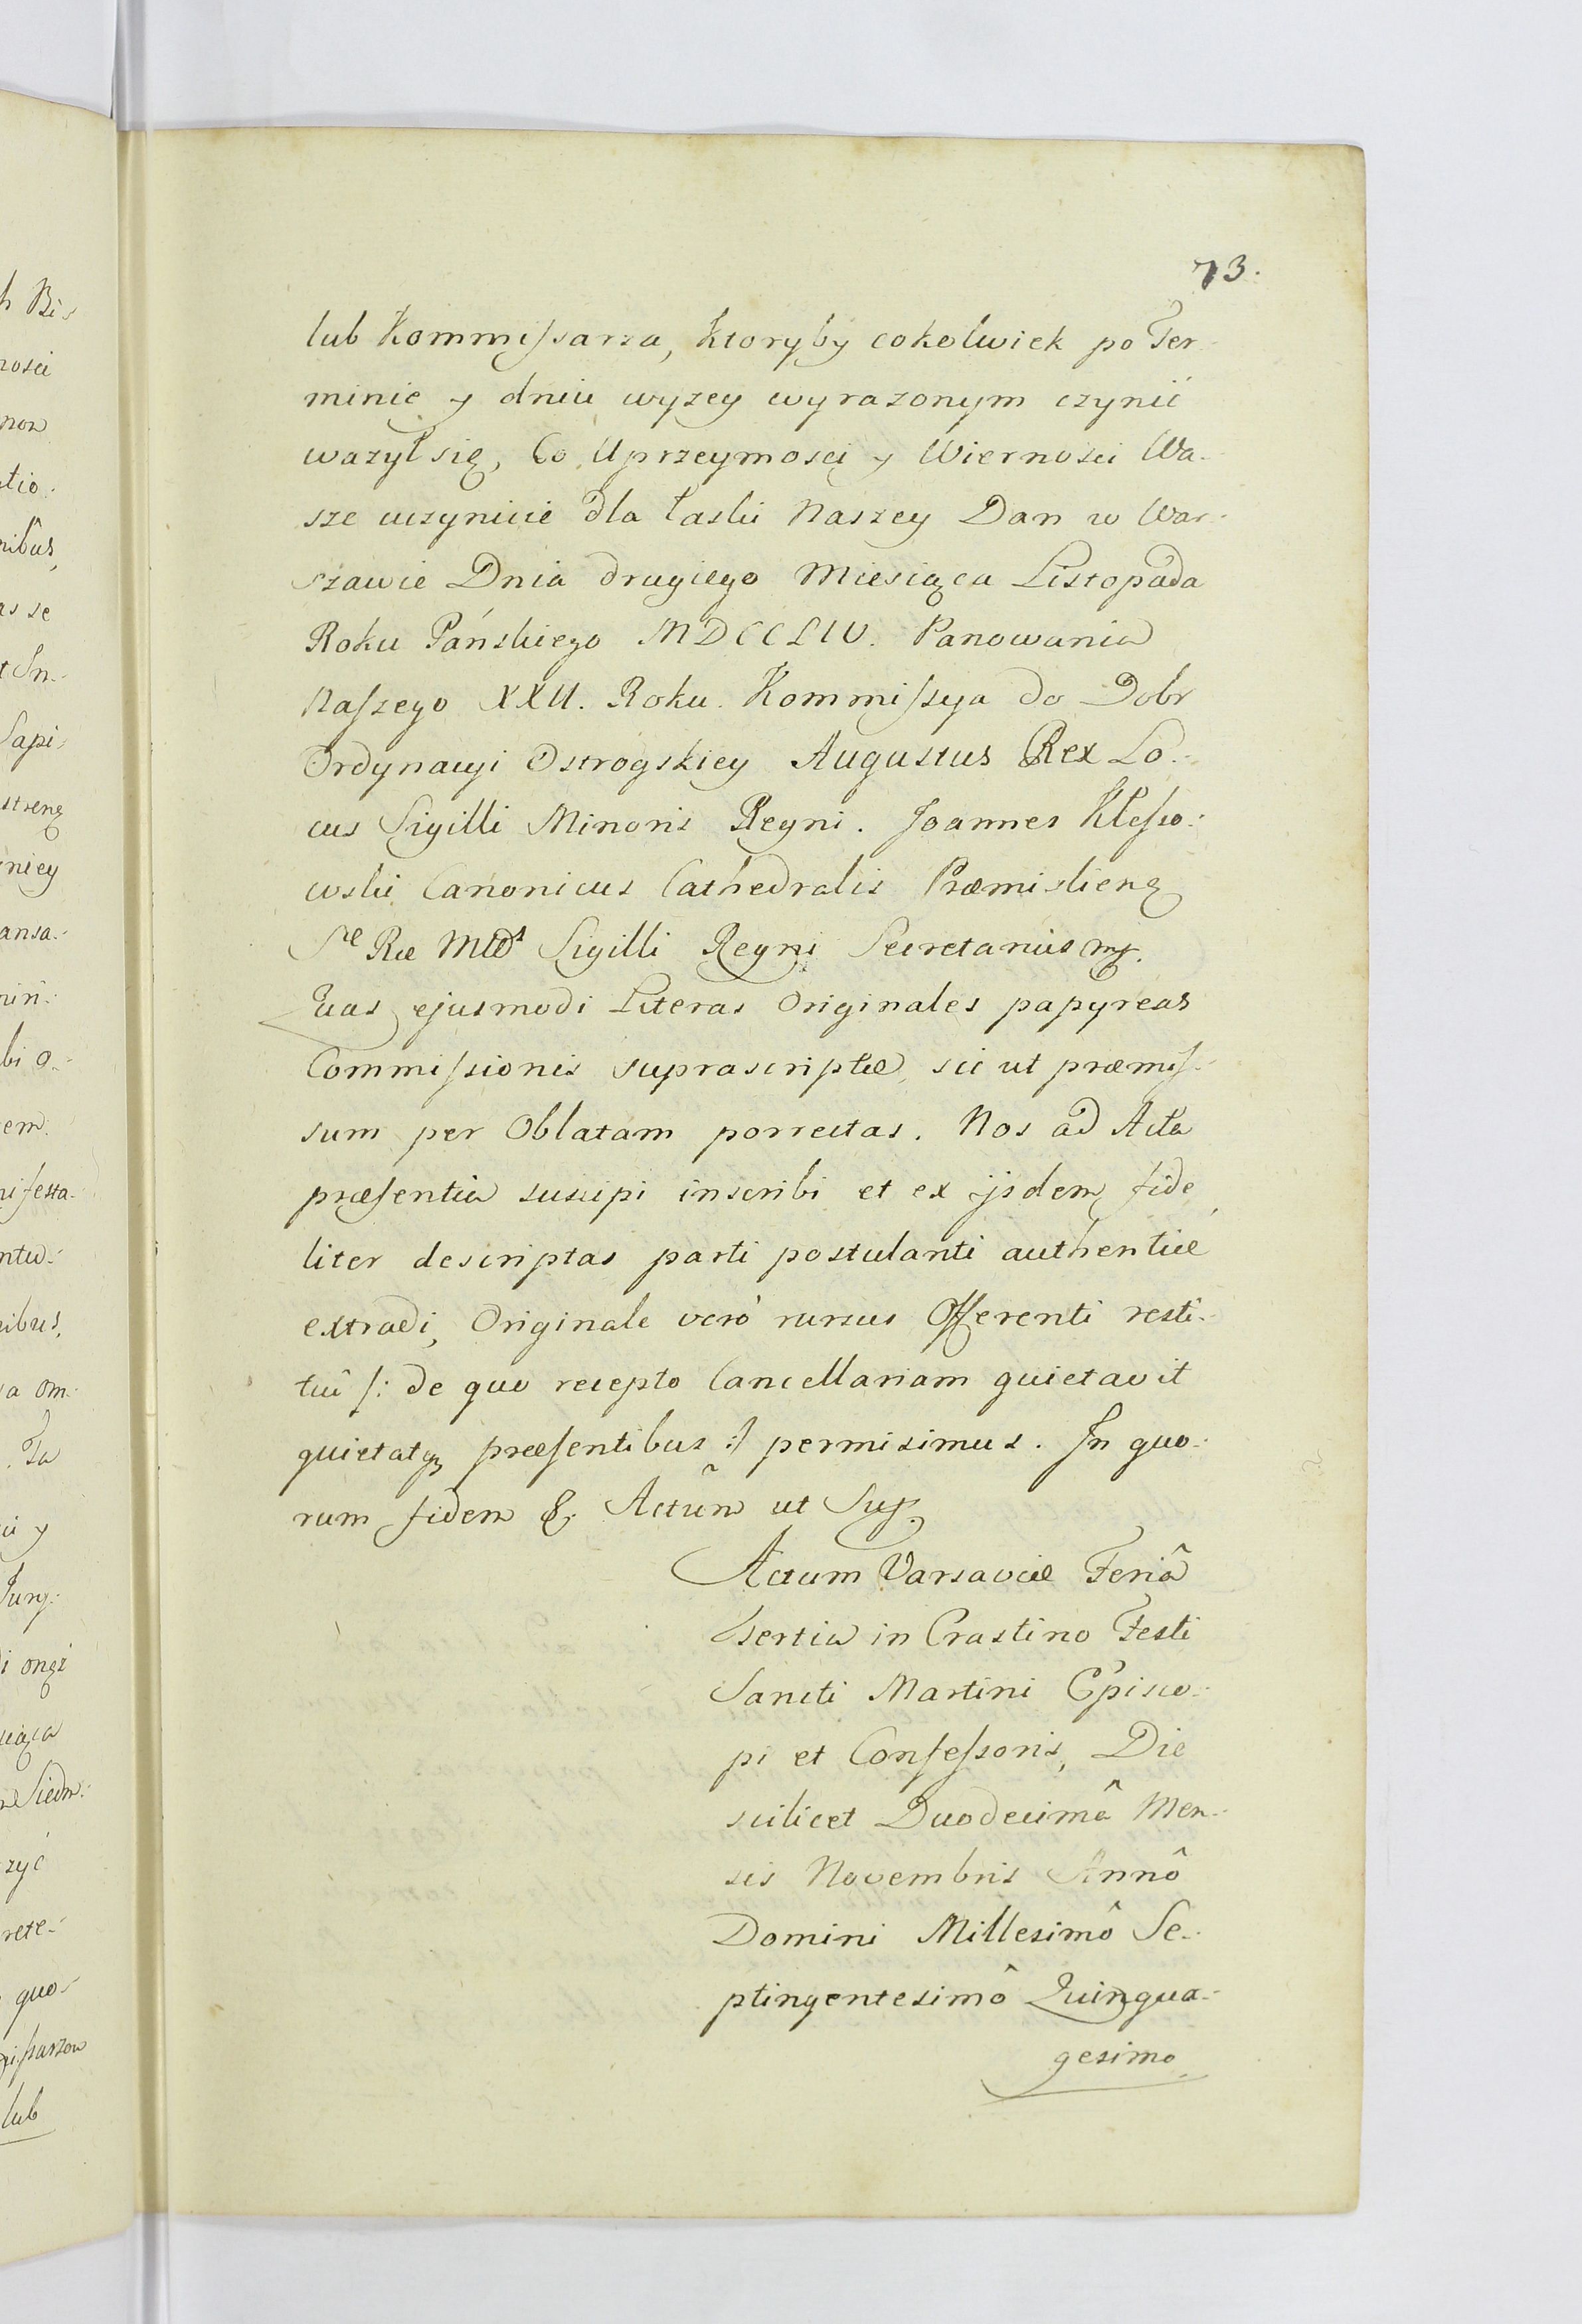 73.
lub Kommissarza, ktoryby cokolwiek po Ter-
minie y dniu wyzey wyrazonym czynić
wazył się, Co Uprzeymosci y Wiernosci Wa-
sze uczynicie dla łaski Naszey Dan w War-
szawie Dnia drugiego Miesiąca Listopada
Roku Pańskiego MDCCLIV. Panowania
Naszego XXII. Roku. Kommissya do Dobr
Ordynacyi Ostrogskiey Augustus Rex Lo-
cus Sigilli Minoris Regni. Joannes
wski Canonicus Cathedralis Præmisliens
Sæ Ræ Mttis Sigilli Regni Secretarius mp.
Quas ejusmodi Literas Originales papyreas
Commissionis suprascriptæ, sic ut præmis-
sum per Oblatam porrectas. Nos ad Acta
præsentia suscipi inscribi et ex ijsdem fide
liter descriptas parti postulanti authenticè
extradi, Originale verò rursus Offerenti resti-
tui /: de quo recepto Cancellariam quietavit
quietatq præsentibus :/ permisimus. In quo-
rum fidem &. Actum ut Sup.
Actum Varsaviæ Feriâ
tertia in Crastino Festi
Sancti Martini Episco-
pi et Confessoris, Die
scilicet Duodecimâ Men-
sis Novembris Annô
Domini Millesimô Se-
ptingentesimô Quinqua-
gesimo
lub